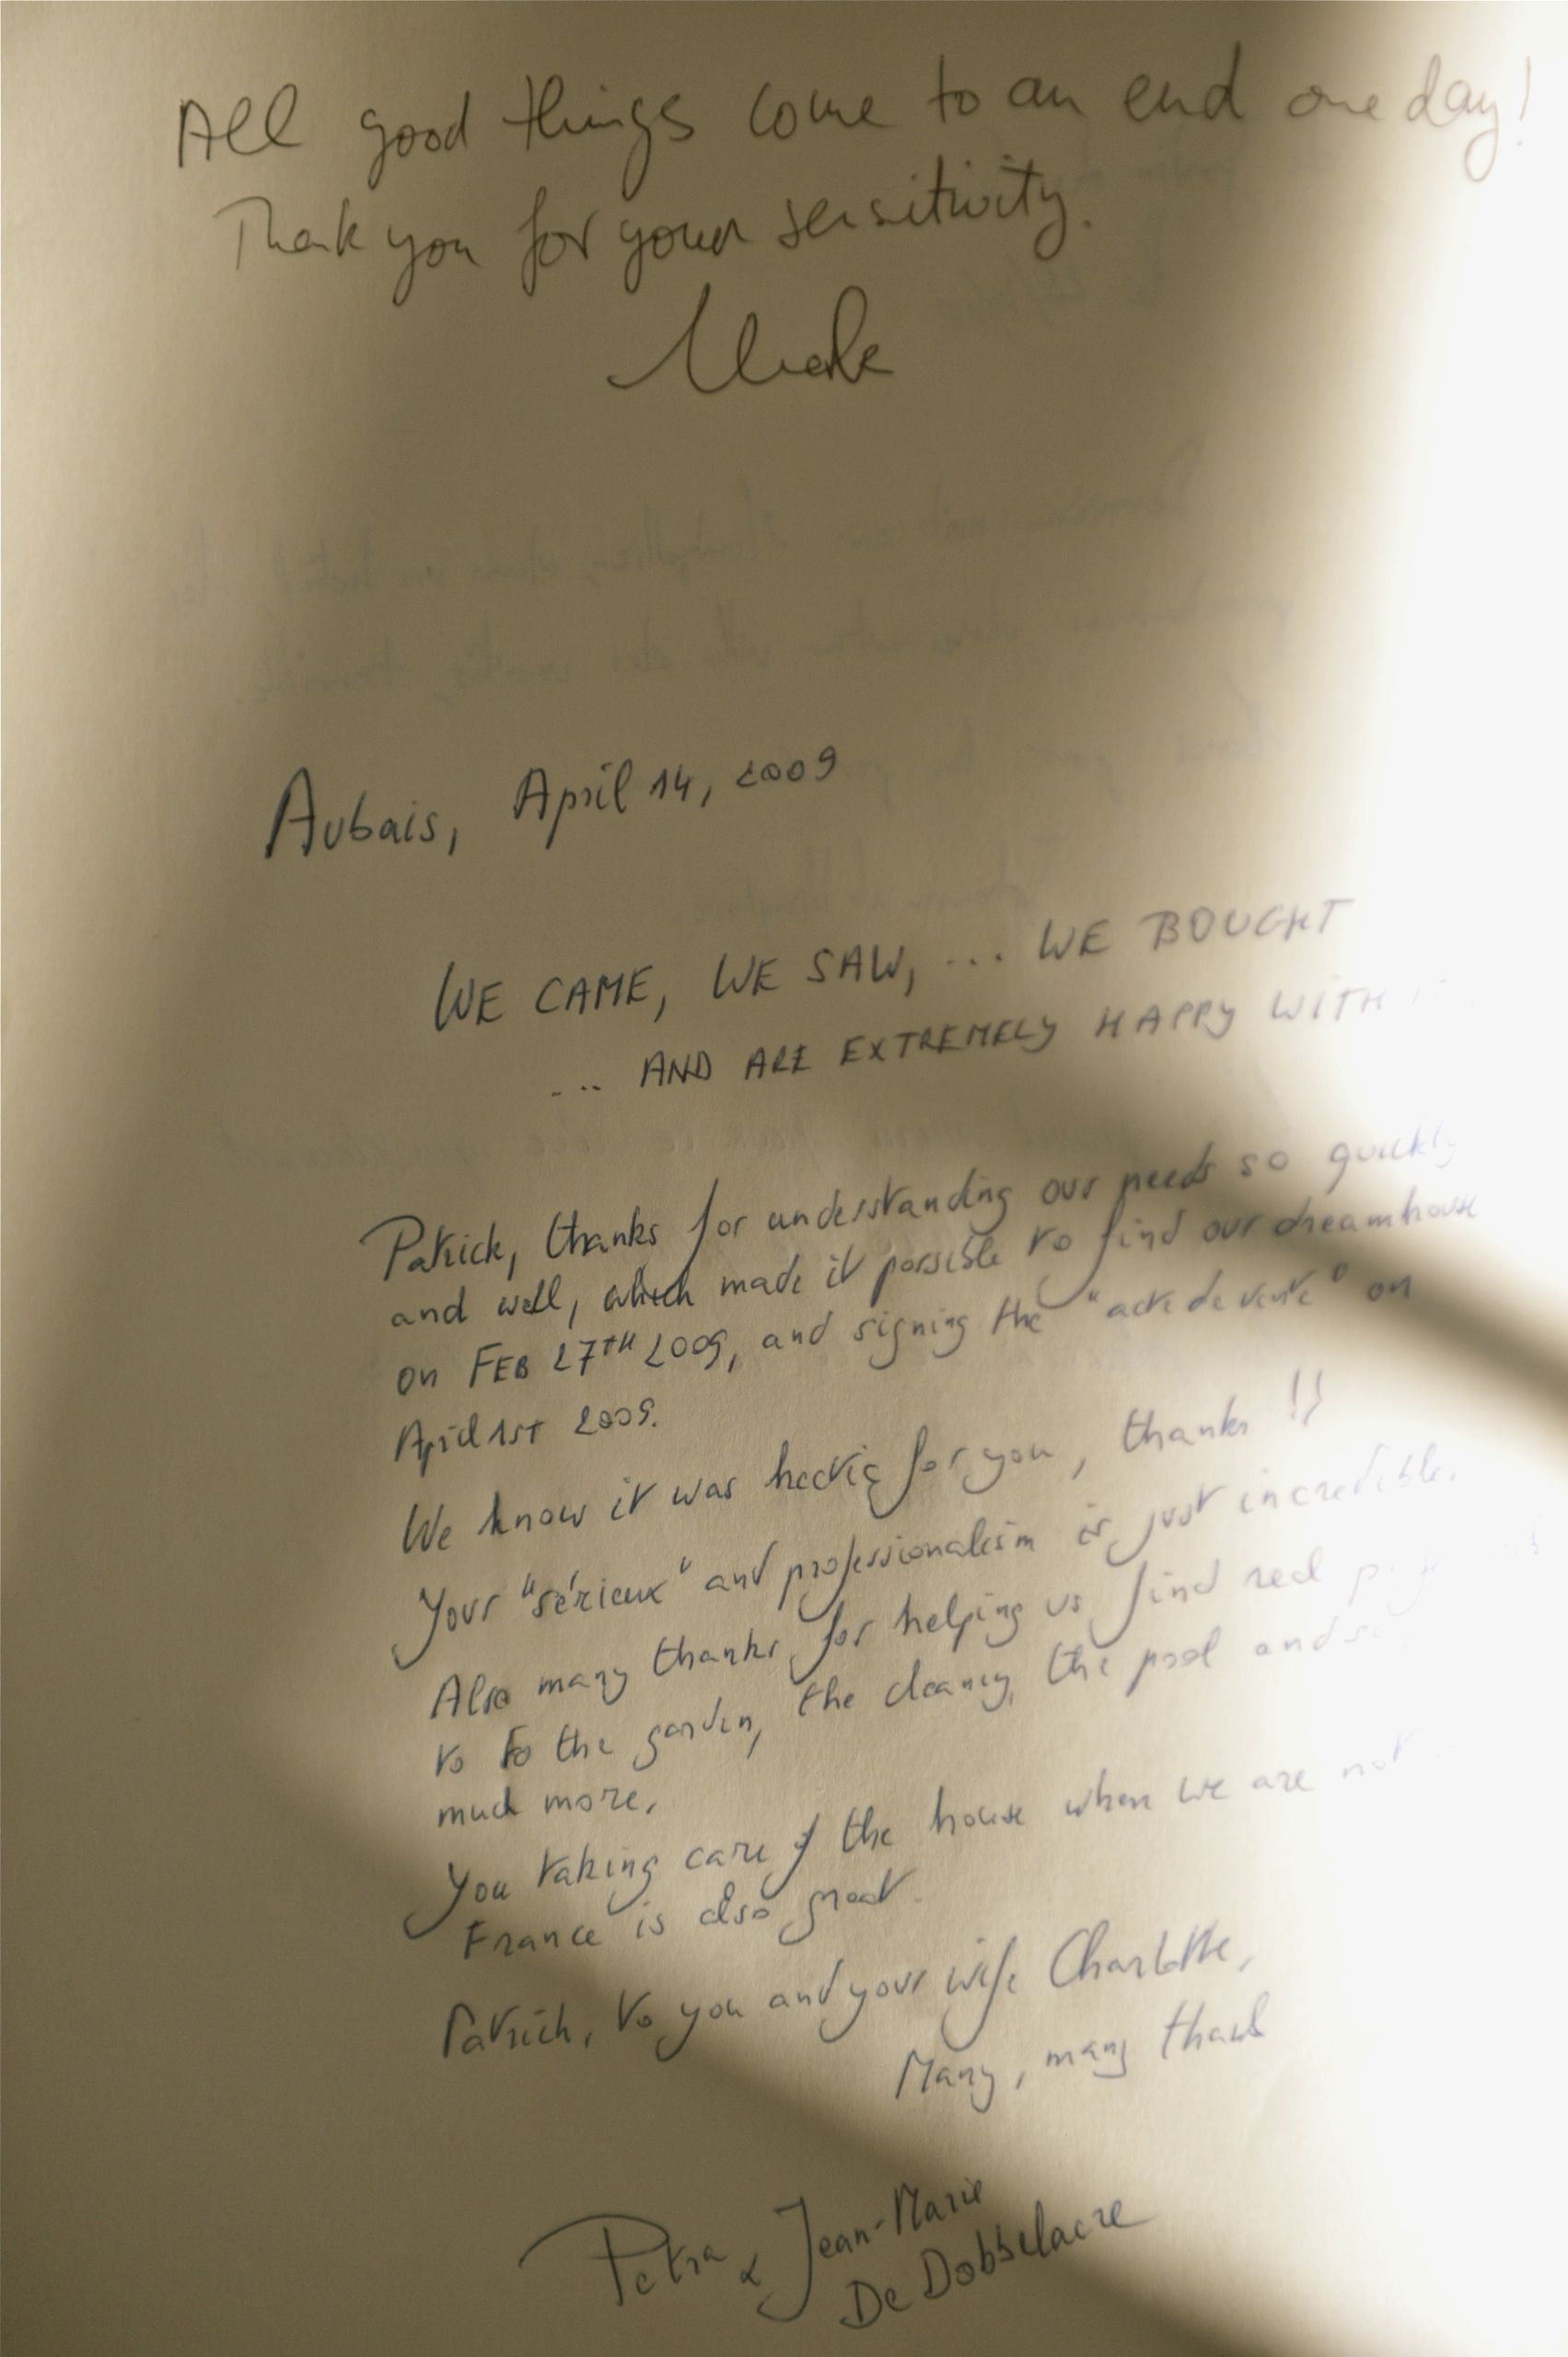 All good things come to an end one day!
Thank you for your sensitivity.
Aubais, April 14, 2009
WE CAME, WE SAW, ... WE BOUGHT
... AND ARE EXTREMELY HAPPY WITH
Patrick, thanks for understanding our needs so quickly
and well, which made it possible to find our dreamhouse
on FEB 27TH 2009, and signing the "acte de vente" on
April 1ST 2009.
We know it was hectic for you, thanks !!
Your "sérieux" and professionalism is just incredible.
Also many thanks for helping us find real
to Fo the garden, the cleaning, the pool and so
much more.
You taking care of the house when we are not
France is also great.
Patrick, to you and your wife Charlotte,
Many, many thanks
Petra & Jean-Marie
De Dobbelaere